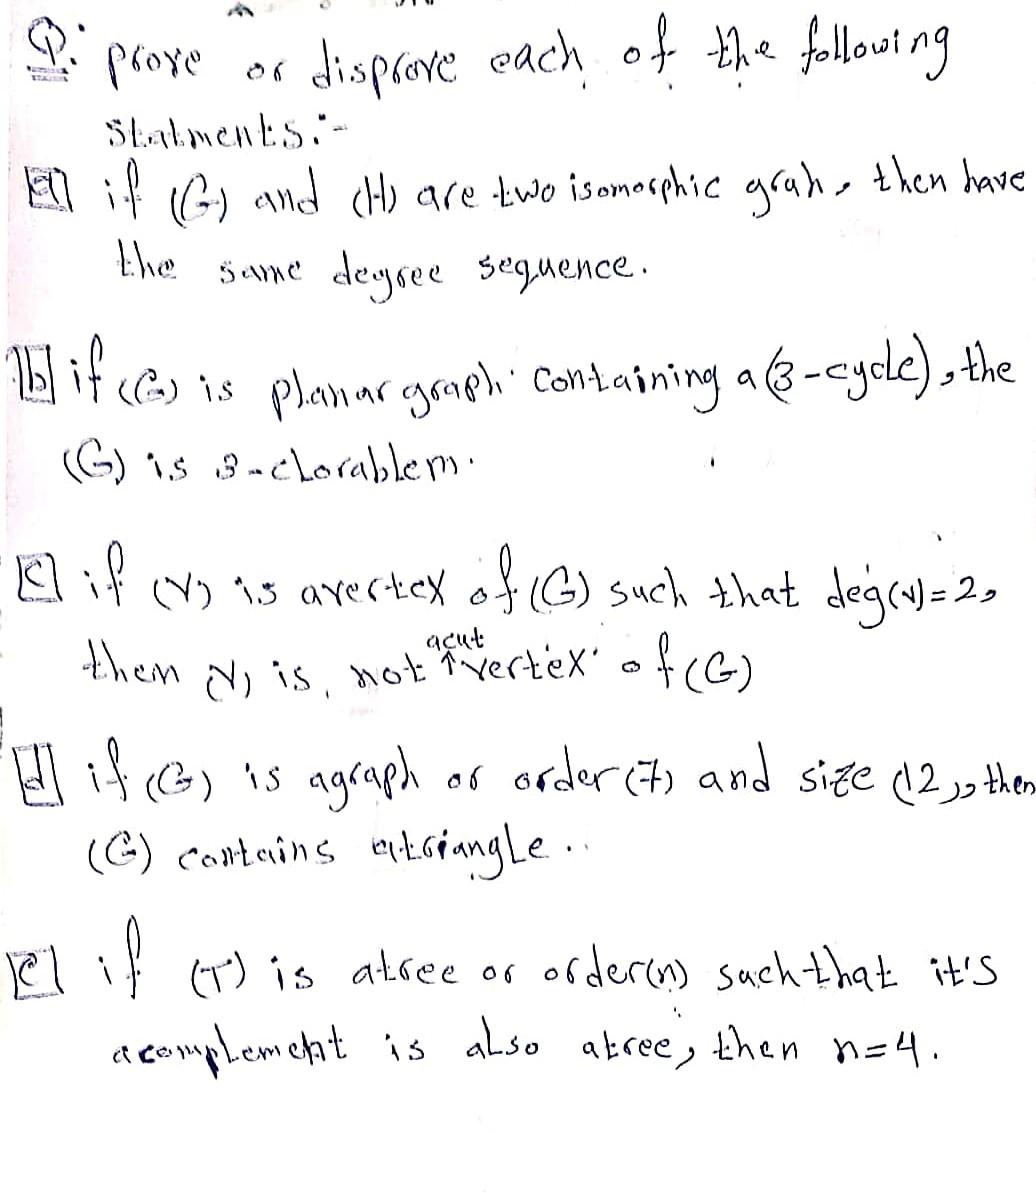 Q: prove or disprove each of the following
Statments:-
a if (G) and (H) are two isomorphic grah, then have
the same degree sequence.
b if (G) is planar graph containing a (3-cycle), the
(G) is 3-clorablem.
c if (v) is avertex of (G) such that deg(v)=2,
acut
then (v) is not ↑ vertex of (G)
d if (G) is agraph or order (7) and size (12), then
(G) contains atriangle..
e if (T) is atree or order(n) such that it's
acomplement is also atree, then n=4.